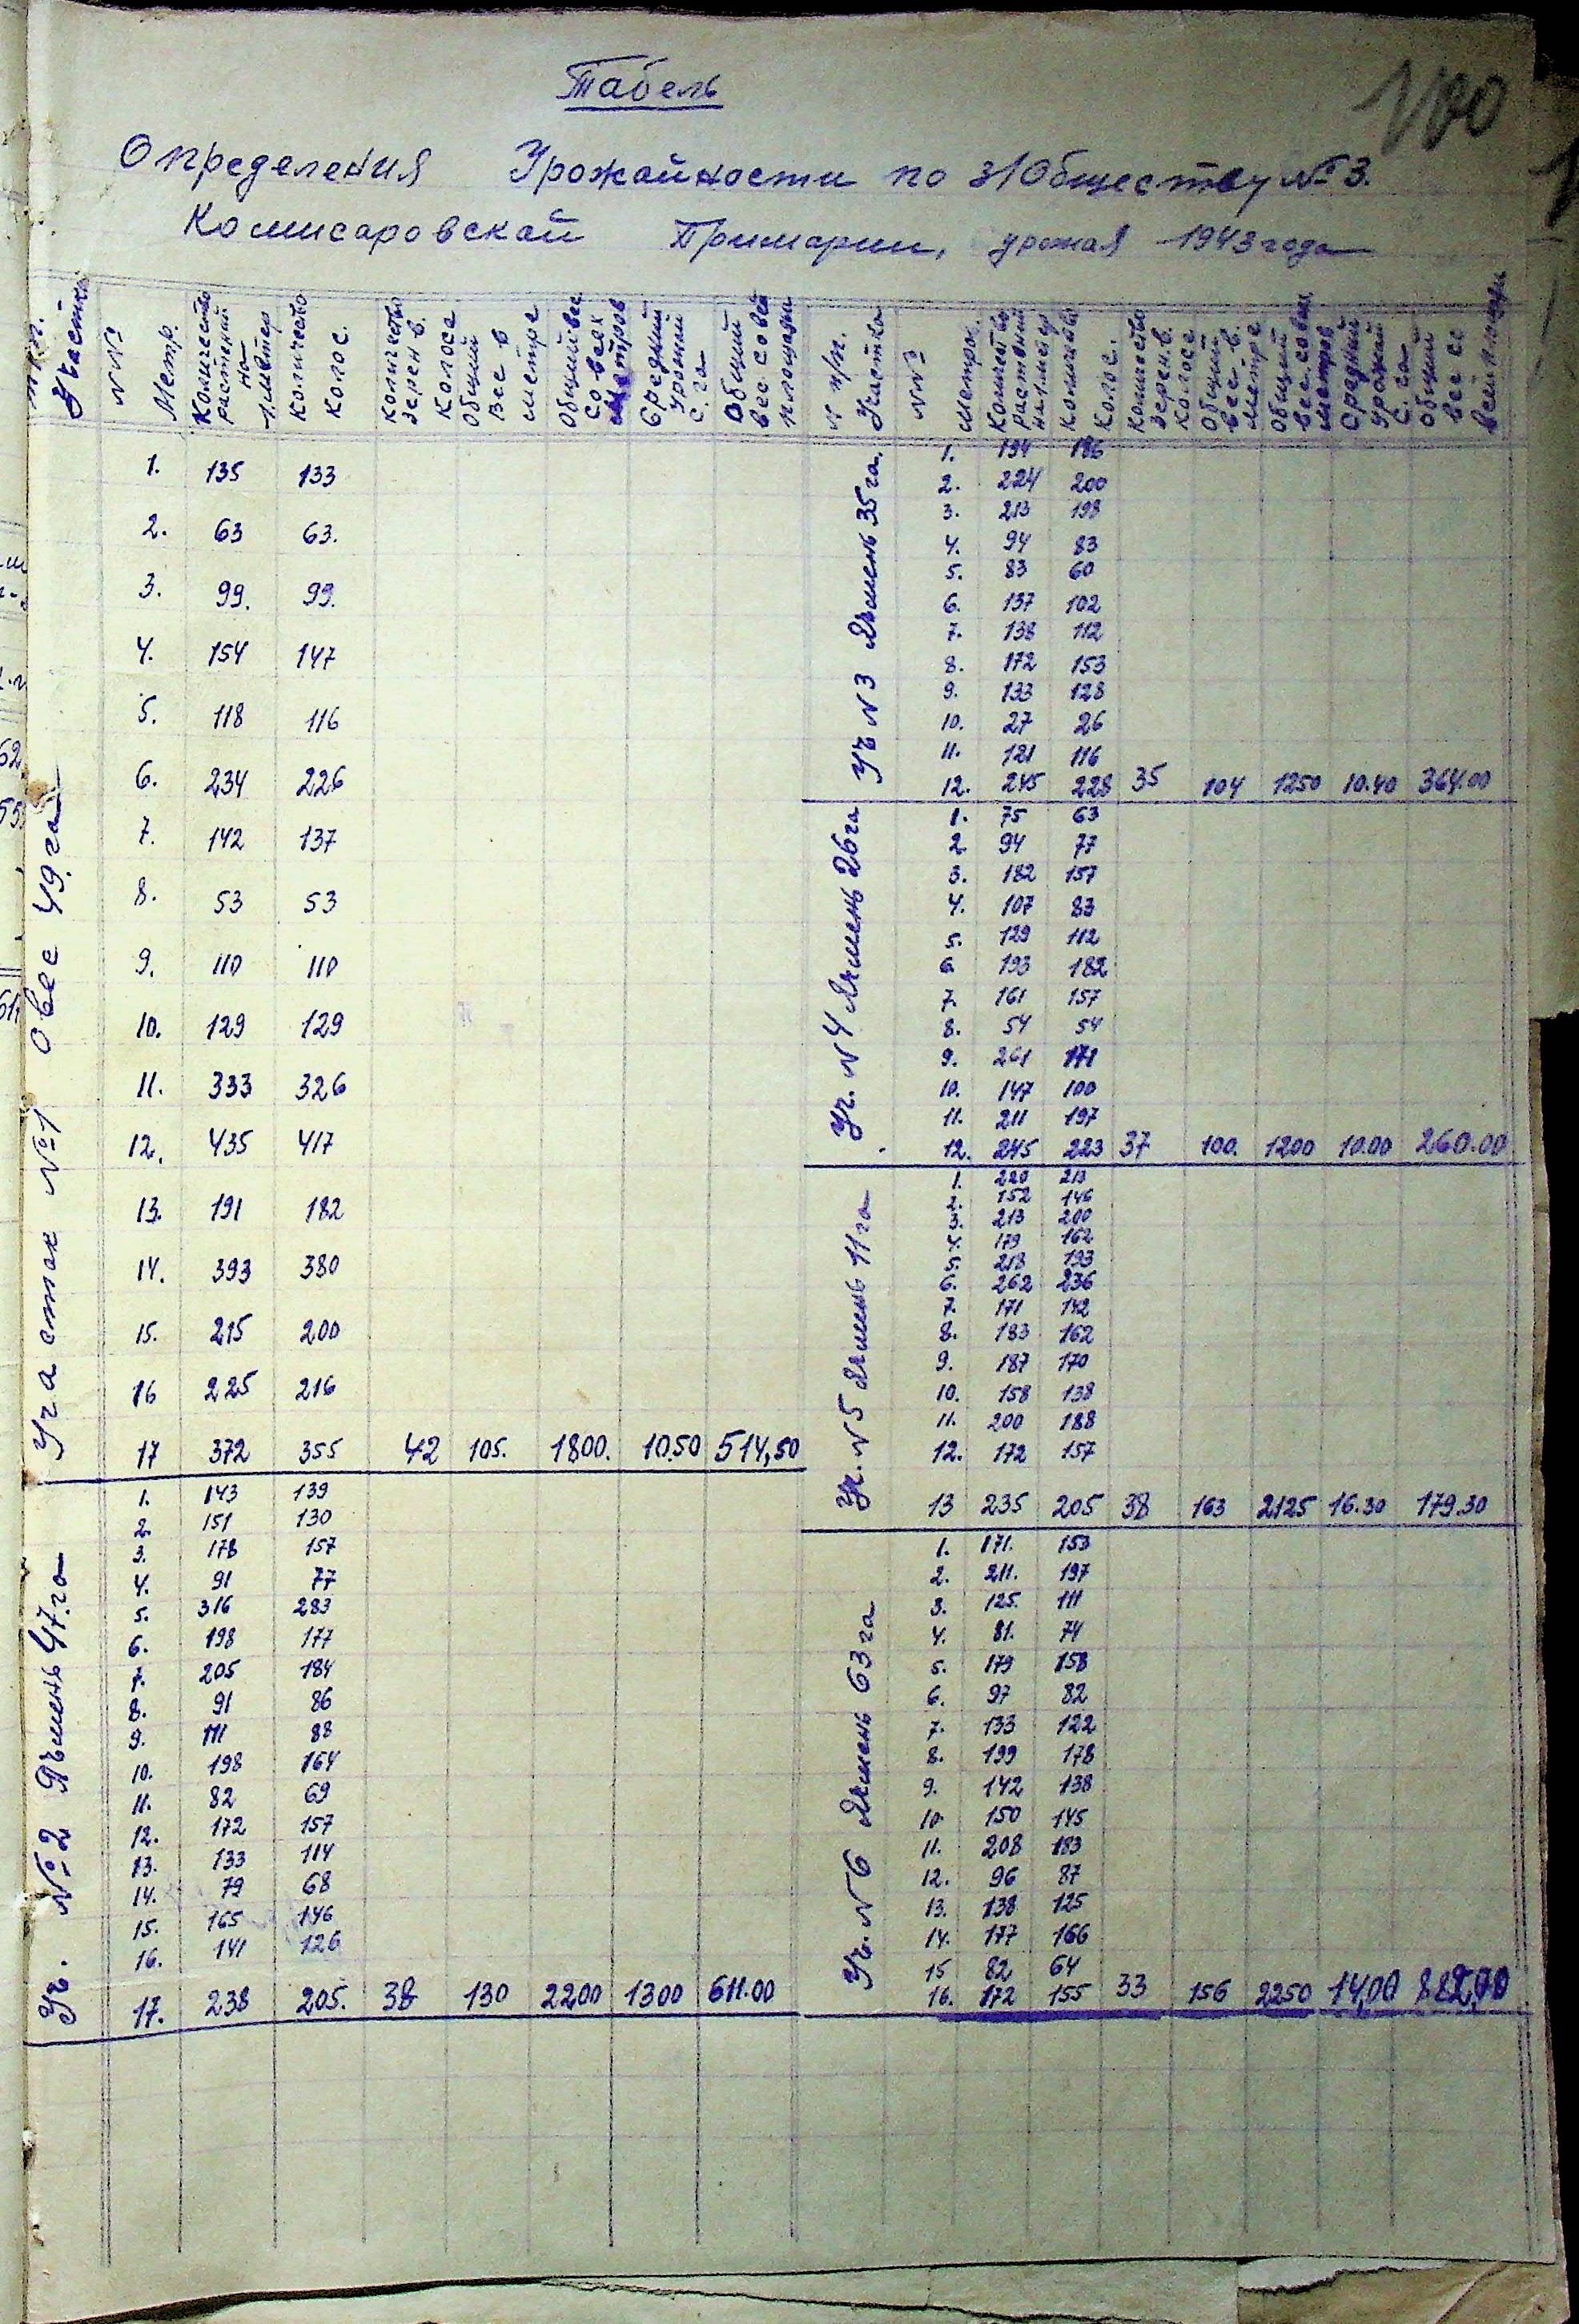 Табель
Определения Урожайности по з/Обществу №3.
Комисаровской Примарии, урожая 1943 года
Участка
№№ Метр.
Количество растений на 1.метер
Количество колос.
Количество зерен в. колоса
Общий вес в метре
Общий вес со всех метров
Средний урожай с. га
Общий вес со всей площади
Участок №1 Овес 49.га
1. 135 133
2. 63 63.
3. 99. 99.
4. 154 147
5. 118 116
6. 234 226
7. 142 137
8. 53 53
9. 110 110
10. 129 129
11. 333 326
12. 435 417
13. 191 182
14. 393 380
15. 215 200
16 225 216
17 372 355 42 105. 1800. 10.50 514,50
Уч. №2 Ячмень 47.га
1. 143 139
2. 151 130
3. 178 157
4. 91 77
5. 316 283
6. 198 177
7. 205 184
8. 91 86
9. 111 88
10. 198 164
11. 82 69
12. 172 157
13. 133 114
14. 79 68
15. 165 146
16. 141 126
17. 238 205. 38 130 2200 1300 611.00
№ п/п. Участка
№№ метров.
Количество растений на 1.метр
Количество колос.
Количество зерен.в. колосе
Общий вес.в. метре
Общий вес.со всех метров
Средний урожай с.га
Общий вес со всей площади
Уч №3 Ячмень 35га.
1. 194 186
2. 224 200
3. 213 198
4. 94 83
5. 83 60
6. 137 102
7. 138 112
8. 172 153
9. 133 128
10. 27 26
11. 121 116
12. 245 228 35 104 1250 10.40 364.00
Уч. №4 Ячмень 26га
1. 75 63
2 94 77
3. 182 157
4. 107 83
5. 129 112
6. 193 182
7. 161 157
8. 54 54
9. 261 171
10. 147 100
11. 211 197
12. 245 223 37 100. 1200 10.00 260.00
Уч. №5 Ячмень 11га
1. 220 213
2. 152 146
3. 213 200
4. 179 162
5. 218 193
6. 262 236
7. 171 142
8. 183 162
9. 187 170
10. 158 138
11. 200 188
12. 172 157
13 235 205 38 163 2125 16.30 179.30
Уч. №6 Ячмень 63га
1. 171. 153
2. 211. 197
3. 125. 111
4. 81. 74
5. 179 158
6. 97 82
7. 133 122
8. 199 178
9. 142 138
10. 150 145
11. 208 183
12. 96 87
13. 138 125
14. 177 166
15 82 64
16. 172 155 33 156 2250 14,00 882,00